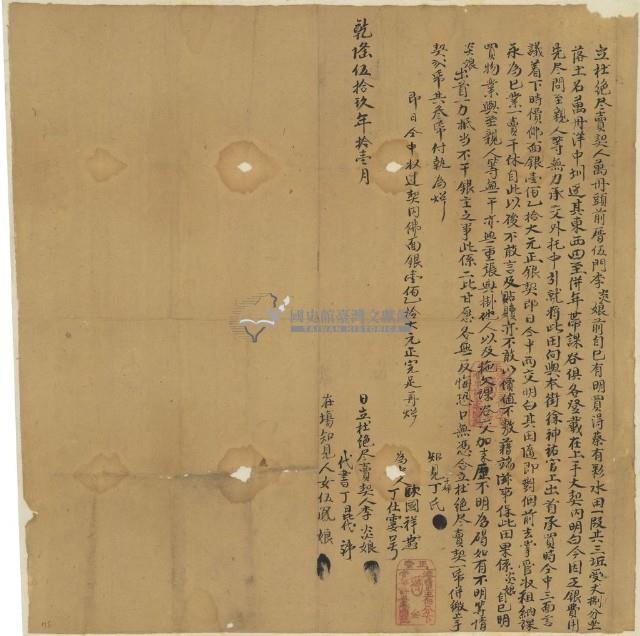 立杜絕尽賣契人萬丹頭前厝伍門李炎娘前自己有明買得蔡有影水田一段共三坵受丈捌分坐
落土名萬丹洋中圳邊其東西四至併年帶課谷俱各登載在上手大契內明白今因乏銀費用
先尽問至親人等無力承交外托中引就將此田向與本街徐神祐官上出首承買時仝中三面言
議着下時價佛面銀壹佰乙拾大元正銀契即日仝中両交明白其田隨即對佃前去掌管收租納課
永為己業一賣千休自此以後不敢言及貼贖亦不敢以價值不敷藉端滋事保此田果係炎娘自己明
買物業與至親人等無干亦無重張典掛他人以及拖欠課谷交加來歷不明為碍如有不明等情
炎娘出首一力抵当不干銀主之事此係二比甘愿各無反悔恐口無憑今立杜絕尽賣契一帋併繳上手
契貳帋共叁帋付執為炤
即日仝中收过契內佛面銀壹佰乙拾大元正完足再炤
知見丁氏
歐國祥
為中人丁仕雲号
乾隆伍拾玖年拾壹月
日立杜絕尽賣契人李炎娘
代書丁昆代
在塲知見人女伍鳳娘
國史館臺灣文獻館
TAIWAN HISTORICA